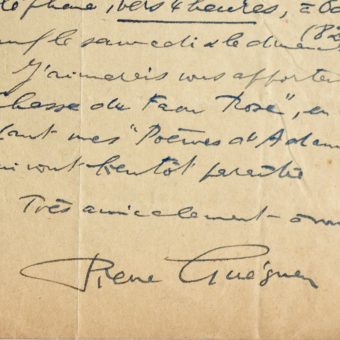 léphone, vers 4 heures, à
(82
sauf le samedi & le diman
J'aimerais vous apporter
Chasse du Faon Rose", en
dant mes "Poèmes d'Adam
qui vont bientôt paraître
Très amicalement à vou
Pierre Guéguen